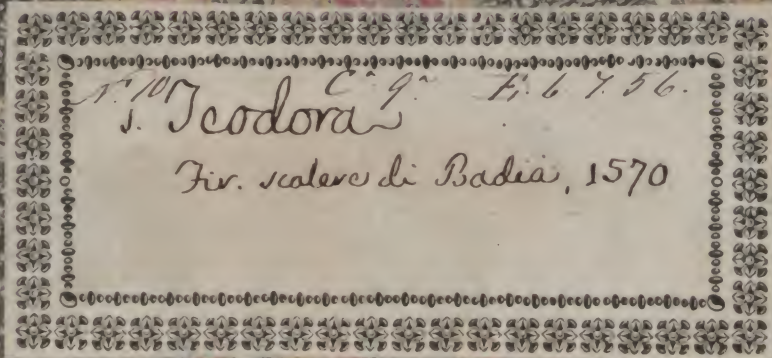 N. 10 C.ª 9.ª F. 6 7. 56.
S. Teodora
Fir. scalere di Badia, 1570